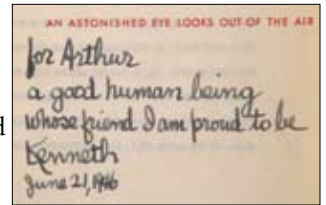 AN ASTONISHED EYE LOOKS OUT OF THE AIR
for Arthur
a good human being
whose friend I am proud to be
Kenneth
June 21, 1946